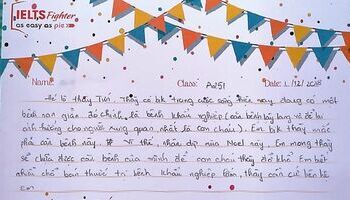 IELTS Fighter
as easy as pie
Name: Class: Date: 1/12/2018
thầy Tiến. Thầy có bk trong cuộc sống hiện nay đang có một
bệnh nan giản đó chính là bệnh khẩu nghiệp (căn bệnh lây lan và để lại
ảnh hưởng cho người xung quanh nhất là con cháu). Em bk thầy mắc
phải căn bệnh này. Vì thế, nhân dịp mùa Noel này. Em mong thầy
sẽ chữa được căn bệnh của mình để con cháu thầy đỡ khổ. Em biết
chỗ bán thuốc trị bệnh khẩu nghiệp lắm, thầy cần cứ liên hệ
em